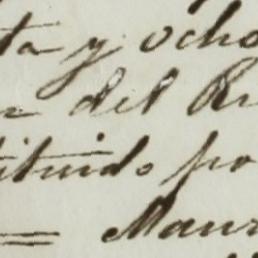 ta y ocho
del
tituido po
= Maur